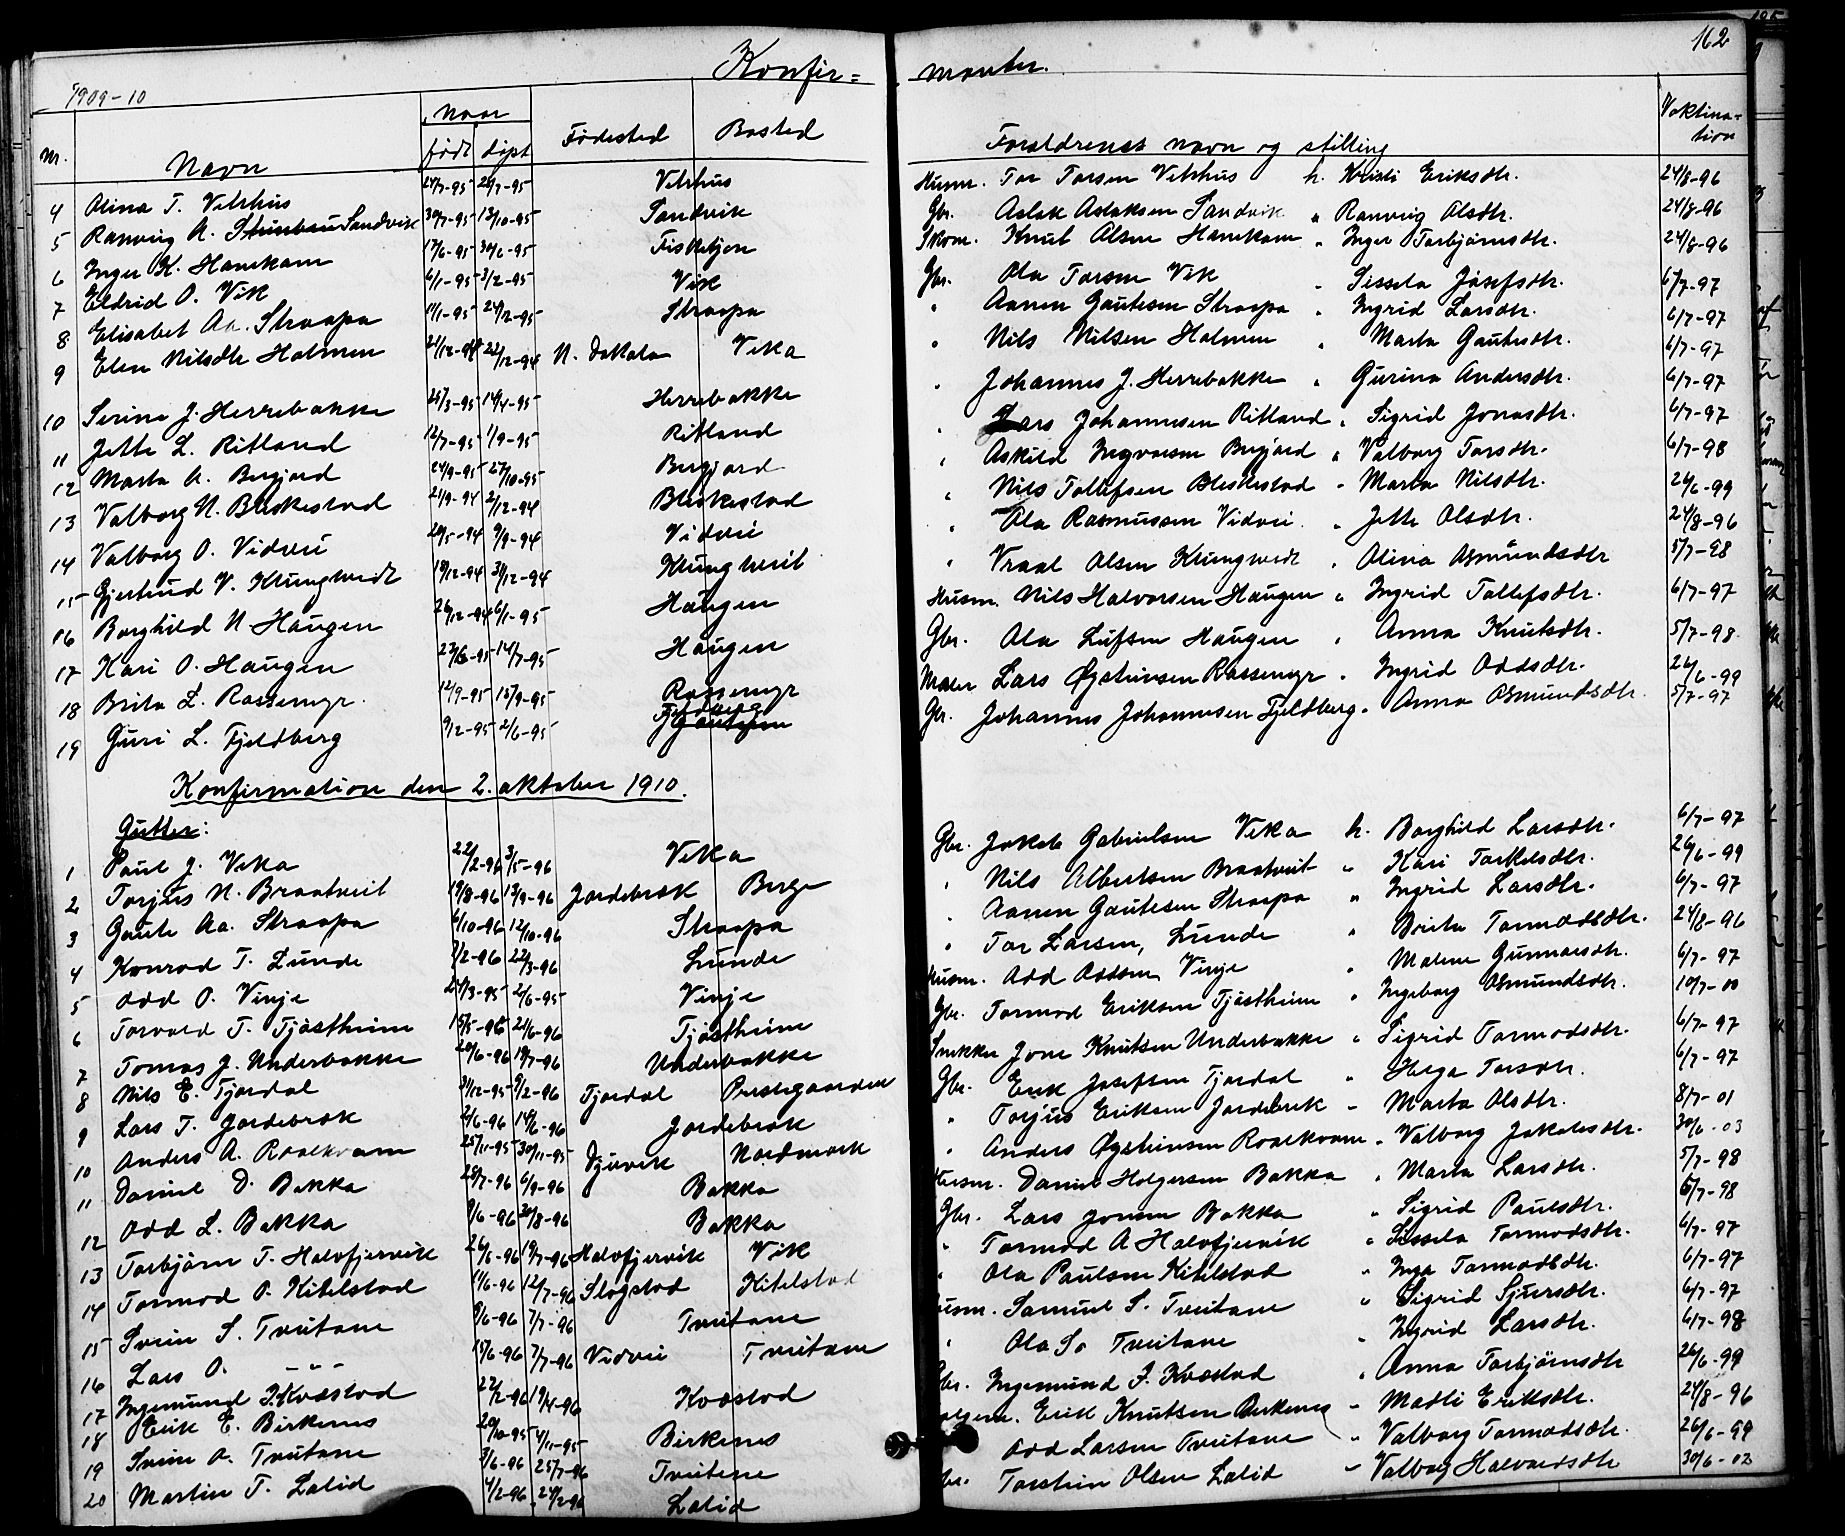 162
Konfir= manter.
1909-10
Nr. Navn Naar født døpt Fødested Bosted Forældrenes navn og stilling Vaktina-tion
4 Alina T. Vetrhus 24/7-95 28/7-95 Vetrhus Husm. Tor Torsen Vetrhus h. Kristi Eriksdtr. 24/8-96
5 Ranveig A. Sandvik 30/7-95 13/10-95 Sandvik Gbr. Aslak Aslaksen Sandvik " Ranveig Olsdtr. 24/8-96
6 Inger K. Hanekam 17/6-95 30/6-95 Fisketjon Skom. Knut Olsen Hanekam " Inger Torbjørnsdtr. 24/8-96
7 Eldrid O. Vik 6/1-95 3/2-95 Vik Gbr. Ola Torsen Vik " Sissela Josefsdtr. 6/7-97
8 Elisabet Aa. Straapa 11/1-95 24/2-95 Straapa " Aanen Gautesen Straapa " Ingrid Larsdtr. 6/7-97
9 Elen Nilsdtr Holmen 21/12-94 22/12-94 N. Dakota Veka " Nils Nilsen Holmen " Marta Gautesdtr. 6/7-97
10 Serina J. Herrebakke 25/3-95 14/4-95 Herrebakke " Johannes J. Herrebakke " Gurina Andersdtr. 6/7-97
11 Jette L. Ritland 12/7-95 1/9-95 Ritland " Lars Johannesen Ritland " Sigrid Jonasdtr. 6/7-97
12 Marta A. Bergjord 24/9-95 27/10-95 Bergjord " Askild Ingvarsen Bergjord " Valborg Torsdtr. 6/7-98
13 Valborg N. Bleskestad 21/9-94 2/12-94 Bleskestad " Nils Tollefsen Bleskestad " Marta Nilsdtr. 26/6-99
14 Valborg O. Vidvei 20/5-94 9/9-94 Vidvei " Ola Rasmussen Vidvei " Jette Olsdtr. 24/8-96
15 Gjertrud V. Klungtveidt 19/12-94 31/12-94 Klungtveit " Vraal Olsen Klungtveidt " Alina Osmundsdtr 5/7-98
16 Borghild N. Haugen 26/12-94 6/1-95 Haugen Husm. Nils Halvorsen Haugen " Ingrid Tollefsdtr. 6/7-97
17 Kari O. Haugen 23/6-95 14/7-95 Haugen Gbr. Ola Leifsen Haugen " Anna Knutsdtr. 5/7-98
18 Brita L. Rassemyr. 12/9-95 15/9-95 Rassemyr Maler Lars Øysteinsen Rassemyr " Ingrid Oddsdtr. 26/6-99
19 Guri L. Fjeldberg 9/2-95 2/6-95 Fjeldberg Gbr. Johannes Johannesen Fjeldberg " Anna Osmundsdtr. 5/7-97
Konfirmation den 2. oktober 1910.
Gutter:
1 Paul J. Veka 22/2-96 3/5-96 Veka Gbr. Jakob Gabrielsen Veka h. Borghild Larsdtr. 6/7-97
2 Torjus N. Braatveit 19/8-96 13/9-96 Jordebræk Berge " Nils Albertsen Braatveit " Kari Torkelsdtr. 26/6-99
3 Gaute Aa. Straapa 6/10-96 12/10-96 Straapa " Aanen Gautesen Straapa " Ingrid Larsdtr. 6/7-97
4 Konrad T. Lunde 2/2-96 22/3-96 Lunde " Tor Larsen, Lunde " Brita Tormodsdtr. 24/8-96
5 Odd O. Vinje 24/3-95 2/6-95 Vinje Husm. Odd Oddsen Vinje " Malene Gunnarsdtr. 6/7-97
6 Torvald T. Tjøstheim 15/5-96 21/6-96 Tjøstheim Gbr. Tormod Eriksen Tjøstheim " Ingeborg Osmundsdtr. 10/7-00
7 Tomas J. Underbakke 20/6-96 19/7-96 Underbakke Snekker Jone Knutsen Underbakke " Sigrid Tormodsdtr. 6/7-97
8 Nils E. Tjordal 31/12-95 9/2-96 Tjordal Prestegaarden Gbr. Erik Josefsen Tjordal " Helga Torsdtr. 6/7-97
9 Lars T. Jordebræk 2/6-96 14/6-96 Jordebræk " Torjus Eriksen Jordebræk " Marta Olsdtr. 8/7-01
10 Anders A. Roalkvam 25/11-95 30/11-95 Djuvik Nordmork " Anders Øysteinsen Roalkvam " Valborg Jakobsdtr. 30/6-03
11 Daniel D. Bakka 28/7-96 6/9-96 Bakka Husm. Daniel Holgersen Bakka " Marta Larsdtr. 5/7-98
12 Odd L. Bakka 9/6-96 30/8-96 Bakka Gbr. Lars Jonsen Bakka " Sigrid Paulsdtr. 5/7-98
13 Torbjørn T. Halvfjervik 26/5-96 19/7-96 Halvfjervik Vik " Tormod A Halvfjervik " Sissela Tormodsdtr. 6/7-97
14 Tormod O. Kitelstad 11/6-96 12/7-96 Slogstad Kitelstad " Ola Paulsen Kitelstad " Inga Tormodsdtr. 6/7-97
15 Svein S. Tveitane 8/6-96 7/7-96 Tveitane Husm. Samuel S. Tveitane " Sigrid Sjursdtr. 6/7-97
16 Lars O. -"- 15/6-96 7/7-96 Vidvei Tveitane " Ola S. Tveitane " Ingrid Larsdtr. 6/7-98
17 Ingemund I. Kvæstad 22/2-96 19/4-96 Kvæstad Gbr. Ingemund I. Kvæstad " Anna Torbjørnsdtr 26/6-99
18 Erik E. Birkenes 20/10-95 4/11-95 Birkenes Erik Knutsen Birkenes " Madli Eriksdtr. 24/8-96
19 Svein O. Tveitane 3/6-96 25/7-96 Tveitene Odd Larsen Tveitane " Valborg Tormodsdtr. 26/6-99
20 Martin T. Lalid 4/2-96 24/2-96 Lalid Gbr. Torstein Olsen Lalid " Valborg Halvardsdtr 30/6-02